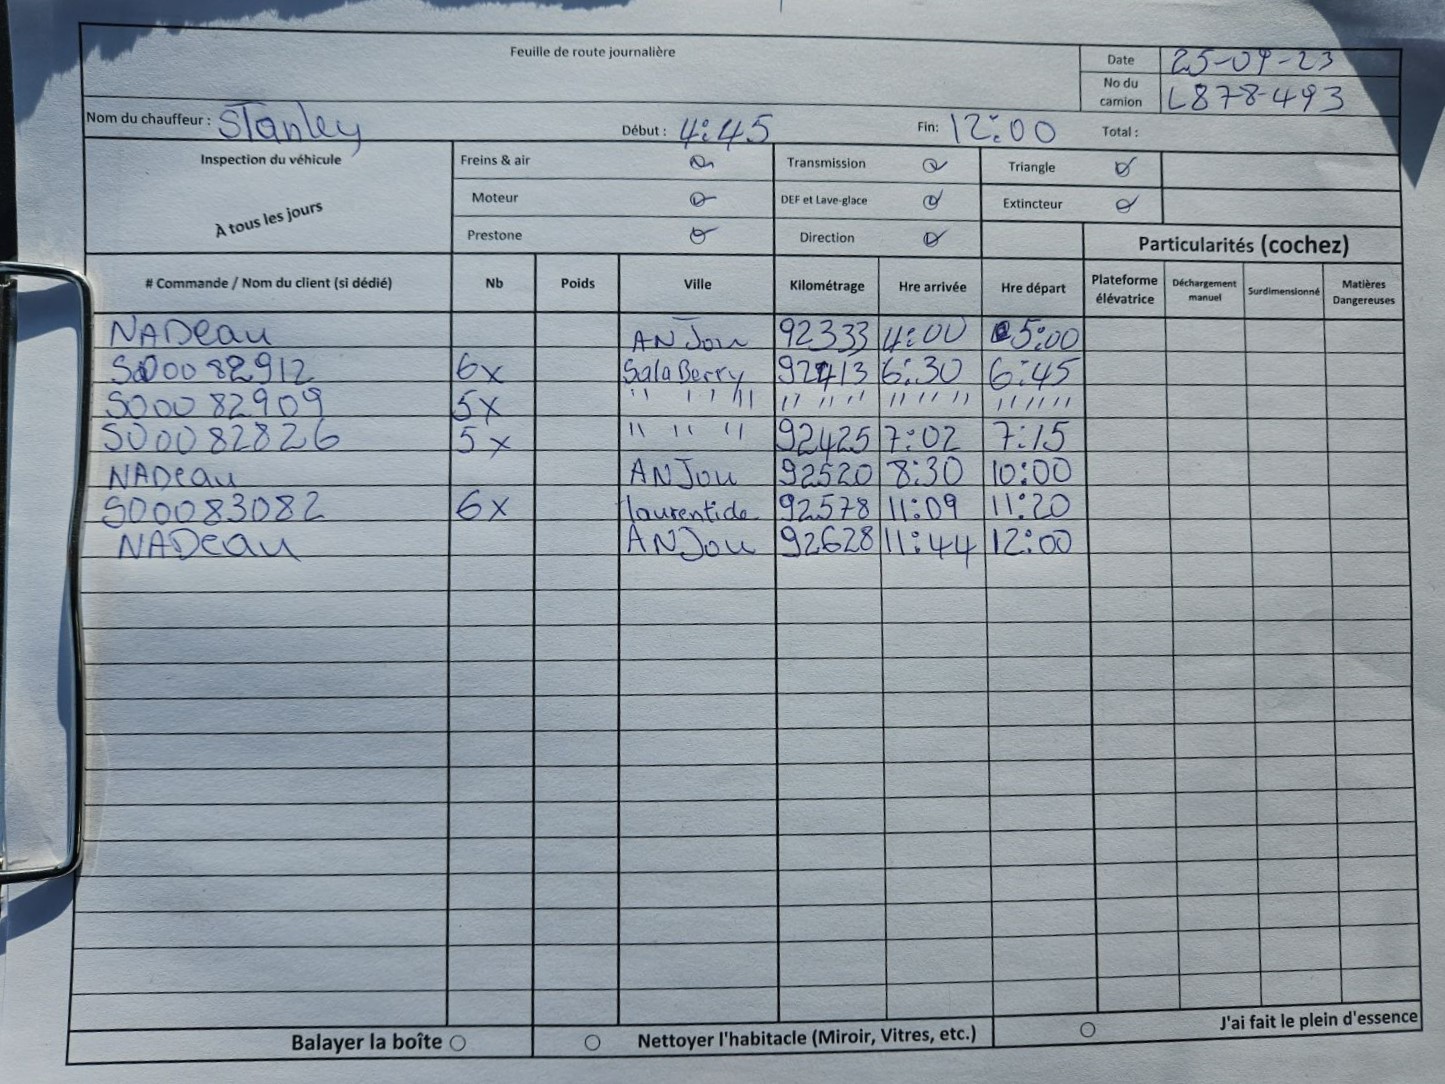 Feuille de route journalière
Date 25-09-23
No du camion L878493
Nom du chauffeur : Stanley Début : 4:45 Fin: 12:00 Total :
Inspection du véhicule Freins & air Transmission Triangle
À tous les jours Moteur DEF et Lave-glace Extincteur
Prestone Direction
Particularités (cochez)
# Commande / Nom du client (si dédié) Nb Poids Ville Kilométrage Hre arrivée Hre départ Plateforme élévatrice Déchargement manuel Surdimensionné Matières Dangereuses
NADeau ANJou 92333 4:00 5:00
S00082912 6x SalaBerry 92413 6:30 6:45
S00082909 5x " " " " " " " " " " " "
S00082826 5x " " " 92425 7:02 7:15
NADeau ANJou 92520 8:30 10:00
S00083082 6x laurentide 92578 11:09 11:20
NADeau ANJou 92628 11:44 12:00
Balayer la boîte Nettoyer l'habitacle (Miroir, Vitres, etc.) J'ai fait le plein d'essence